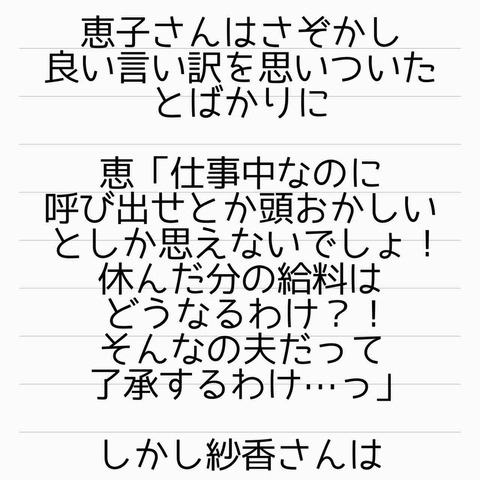 恵子さんはさぞかし
良い言い訳を思いついた
とばかりに
恵「仕事中なのに
呼び出せとか頭おかしい
としか思えないでしょ！
休んだ分の給料は
どうなるわけ？！
そんなの夫だって
了承するわけ…っ」
しかし紗香さんは